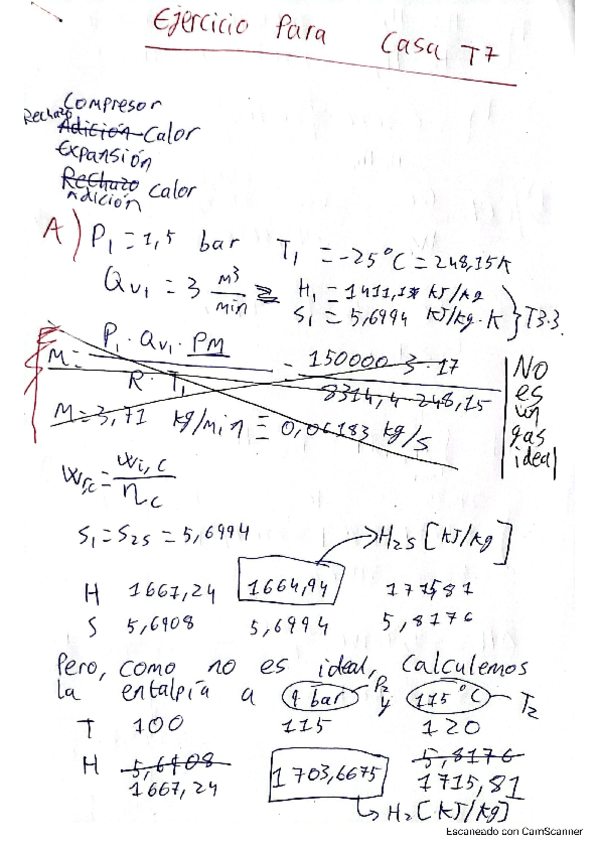 Ejercicio Para Casa T7
Compresor
Rechazo
Adición Calor
Expansión
Rechazo Calor
Adición
A) P1 = 1,5 bar T1 = -25°C = 248,15K
Qv1 = 3 m³/min H1 = 1411,13 KJ/kg
S1 = 5,6994 KJ/kg·K } T3.3.
M = P1 · Qv1 · PM / R · T1 = 150000 · 3 · 17 / 8314,4 · 248,15
M = 3,71 kg/min ≡ 0,06183 kg/s
NO
es
un
gas
ideal
Wr,c = Wi,c / ηc
S1 = S2S = 5,6994
H2S [KJ/Kg]
H 1667,24 1664,94
S 5,6908 5,6994 5,8176
Pero, como no es ideal, calculemos
la entalpía a 9 bar P2 y 115°C T2
T 100 115 120
H 5,6908 5,8176
1667,24 1703,6675 1715,81
H2 [KJ/Kg]
Escaneado con CamScanner